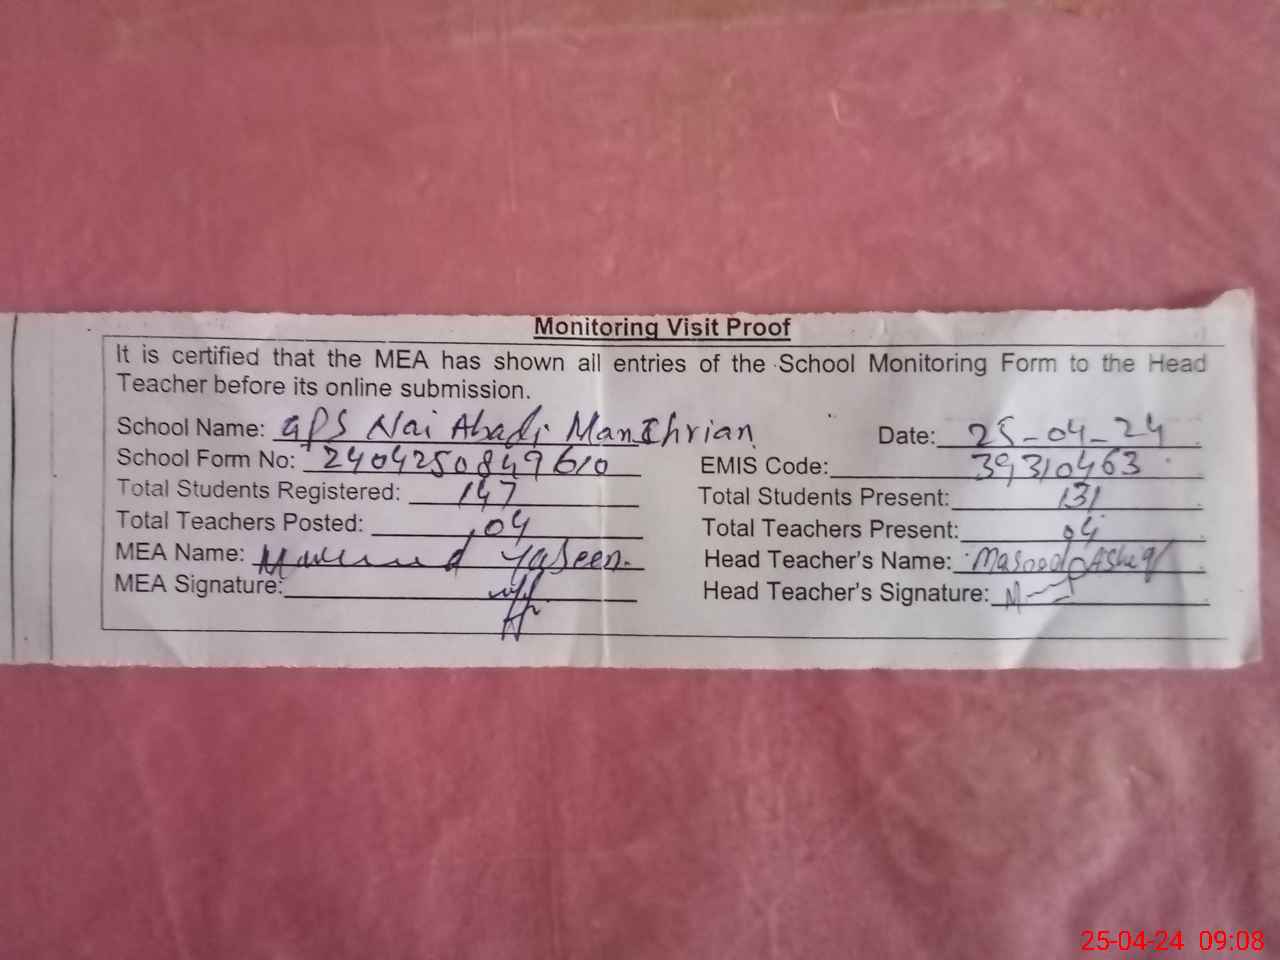 Monitoring Visit Proof
It is certified that the MEA has shown all entries of the School Monitoring Form to the Head
Teacher before its online submission.
School Name: GPS Nai Abadi Manthrian Date: 25-04-24
School Form No: 2404250849610 EMIS Code: 39310463
Total Students Registered: 147 Total Students Present: 131
Total Teachers Posted: 04 Total Teachers Present: 04
MEA Name: Yaseen. Head Teacher's Name: Masood
MEA Signature: Head Teacher's Signature:
25-04-24 09:08